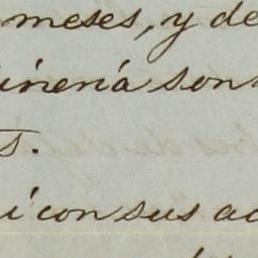 meses, y de
inería son
s.
i con sus ac